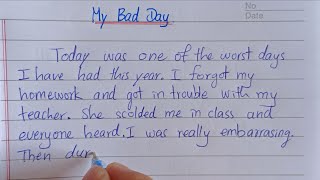 My Bad Day
No
Date
Today was one of the worst days
I have had this year. I forgot my
homework and got in trouble with my
teacher. She scolded me in class and
everyone heard. I was really embarrasing.
Then dur